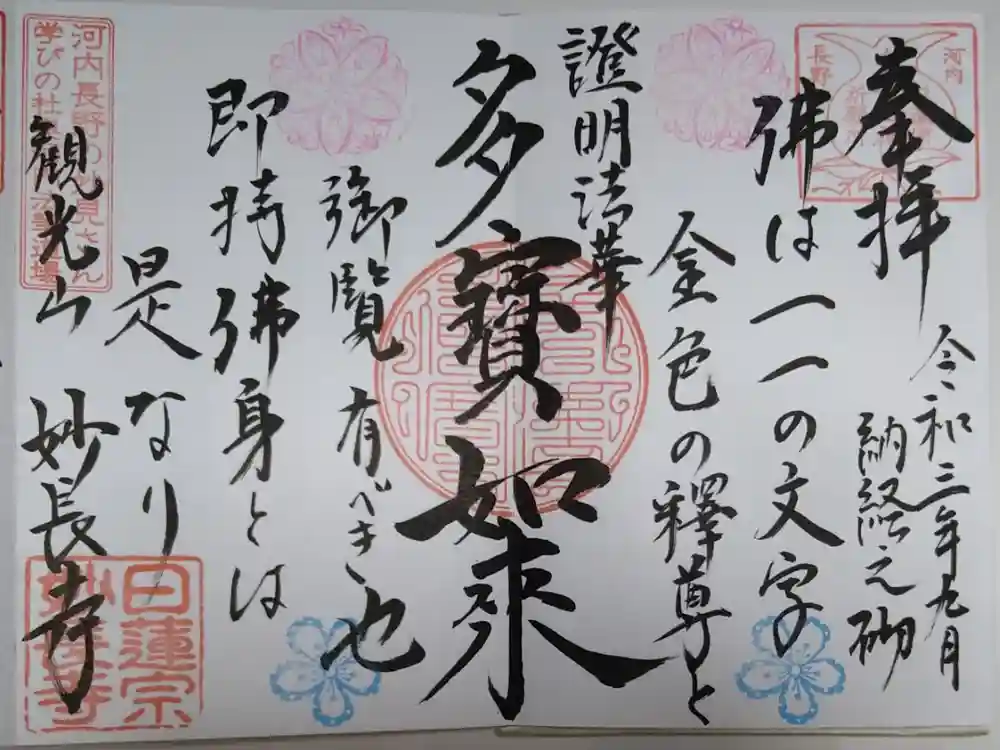 奉拝
令和三年九月
納経之砌
佛は一一の文字
金色の釋尊と
證明法華
多寶如來
御覧有べき也
即持佛身とは
是なり
観光山 妙長寺
河内
長野
河内長野の
学びの杜
日蓮宗
妙長寺